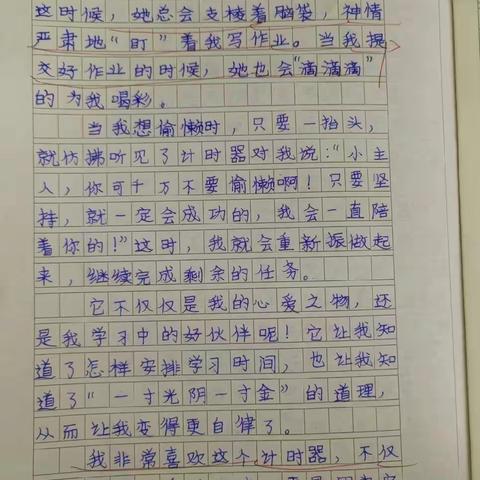 这时候，她总会支棱着脑袋，神情
严肃地“盯”着我写作业。当我提
交好作业的时候，她也会“滴滴滴”
的为我喝彩。
当我想偷懒时，只要一抬头，
就仿拂听见了计时器对我说：“小主
人，你可千万不要偷懒啊！只要坚
持，就一定会成功的，我会一直陪
着你的！”这时，我就会重新振做起
来，继续完成剩余的任务。
它不仅仅是我的心爱之物，还
是我学习中的好伙伴呢！它让我知
道了怎样安排学习时间，也让我知
道了“一寸光阴一寸金”的道理，
从而让我变得更自律了。
我非常喜欢这个计时器，不仅